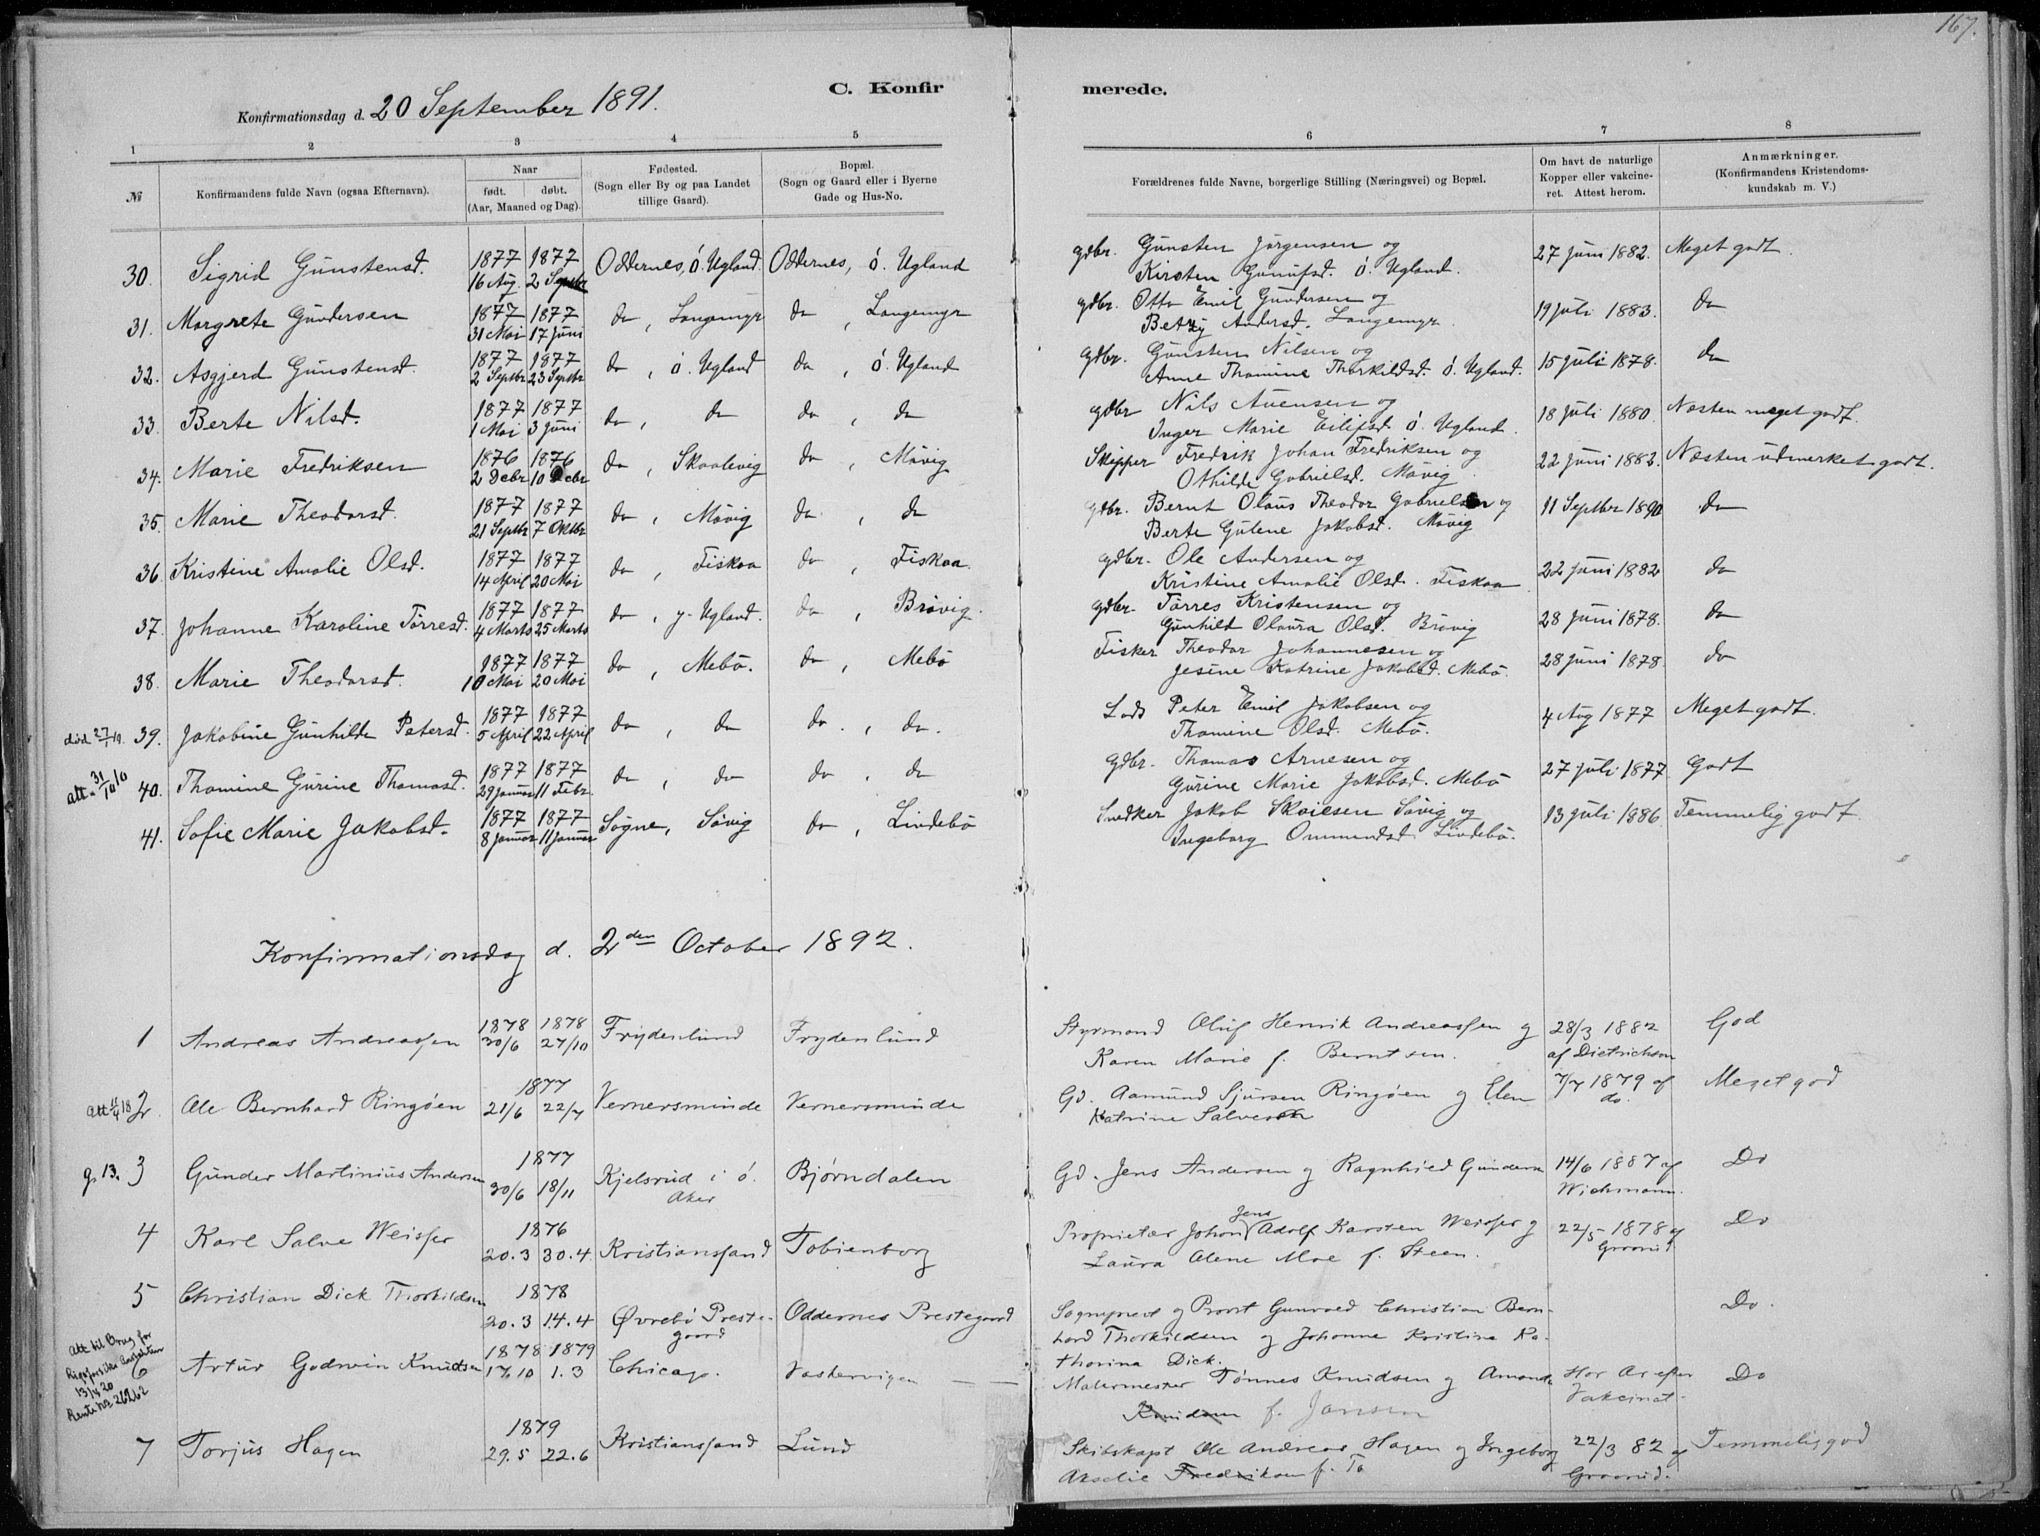 167.
C. Konfir merede.
Konfirmationsdag d. 20 September 1891.
1 2 3 4 5 6 7 8
№ Konfirmandens fulde Navn (ogsaa Efternavn). Naar født. døbt. (Aar, Maaned og Dag). Fødested. (Sogn eller By og paa Landet tillige Gaard). Bopæl. (Sogn og Gaard eller i Byerne Gade og Hus-No. Forældrenes fulde Navne, borgerlige Stilling (Næringsvei) og Bopæl. Om havt de naturlige Kopper eller vakcineret. Attest herom. Anmærkninger. (Konfirmandens Kristendomskundskab m. V.)
30. Sigrid Gunstensd. 1877 16 Aug. 1877 2 Septbr Oddernes, ö. Ugland. Oddernes, ö. Ugland gdbr. Gunsten Jørgensen og
Kirsten Gunufsd. ö. Ugland. 27 Juni 1882. Meget godt.
31. Margrete Gundersen 1877 31 Mai 1877 17 Juni do, Langemyr do, Langemyr gdbr. Otto Emil Gundersen og
Betzy Andersd. Langemyr. 19 Juli 1883. do
32. Asgjerd Gunstensd. 1877 2 Septbr 1877 23 Septbr do, ö. Ugland do, ö. Ugland gdbr. Gunsten Nilsen og
Anne Thomine Thorkildsd. ö. Ugland. 15 Juli 1878. do
33. Berte Nilsd. 1877 1 Mai 1877 3 Juni do, do do, do gdbr Nils Avensen og
Inger Marie Eilifsd ö. Ugland. 18 Juli 1880. Næsten meget godt.
34. Marie Fredriksen 1876 2 Debr 1876 10 Debr do, Skaalevig do, Måvig Skipper Fredrik Johan Fredriksen og
Othilde Gabrielsd. Måvig. 22 Juni 1882. Næsten udmerket godt.
35. Marie Theodorsd. 1877 21 Septbr 1877 7 Oktbr do, Måvig do, do gdbr. Bernt Olaus Theodor Gabrielsen og
Berte Gulene Jakobsd. Måvig 11 Septbr 1890 do
36. Kristine Amalie Olsd. 1877 14 April 1877 20 Mai do, Fiskaa do, Fiskaa. gdbr. Ole Andersen og
Kristine Amalie Olsd. Fiskaa 22 Juni 1882 do
37. Johanne Karoline Tørresd. 1877 4 Marts 1877 25 Marts do, y. Ugland. do, Bråvig. gdbr. Tørres Kristensen og
Gunhild Olaura Olsd. Bråvig 28 Juni 1878. do
38. Marie Theodorsd. 1877 10 Mai 1877 20 Mai do, Mebö. do, Mebö Fisker Theodor Johannesen og
Jesine Katrine Jakobsd. Mebö. 28 Juni 1878. do
død 27/1 19. 39. Jakobine Gunhilde Petersd. 1877 5 April 1877 22 April do, do do, do. Lods Peter Emil Jakobsen og
Thomine Olsd. Mebö. 4 Aug 1877 Meget godt.
att. 31/10 10 40. Thomine Gurine Thomasd. 1877 29 Januar 1877 11 Febr. do, do do, do gdbr. Thomas Arnesen og
Gurine Marie Jakobsd. Mebö 27 Juli 1877. Godt
41. Sofie Marie Jakobsd. 1877 8 Januar 1877 11 Januar Søgne, Såvig do, Lindebö Snedker Jakob Skaiesen Såvig og
Ingeborg Ommundsd. Lindebö. 13 Juli 1886. Temmelig godt.
Konfirmationsdag d. 2den October 1892.
1 Andreas Andreassen 1878 30/6 1878 27/10 Frydenlund Frydenlund Styrmand Oluf Henrik Andreassen og
Karen Marie f. Berntsen. 28/3 1882 af Dietrichson God
Att 11/4 18 2 Ole Bernhard Ringøen 1877 21/6 22/7 Vernersminde Vernersminde Gd. Aamund Sjursen Ringøen og Elen
Katrine Salvesen 7/7 1879 af do. Meget god
g. 13. 3 Gunder Martinius Andersen 1877 30/6 18/11 Kjelsrud i ö. Aker Bjørndalen Gd. Jens Andersen og Ragnhild Gunders 14/6 1887 af Wichmann. Do
4 Karl Salve Weisser 1876 20.3 30.4 Kristianssand Tobienborg Proprietær Johan Jens Adolf Karsten Weisser og
Laura Alene Moe f. Steen. 22/5 1878 af Do
5 Christian Dick Thorkildsen 1878 20.3 14.4 Øvrebö Prestegaard Oddernes Prestegaard Sogneprest og Provst Gunvald Christian Bern-
hard Thorkildsen og Johanne Kristina Ka-
tharina Dick. Do.
Att til Brug for
13/4 20
Rente Nr 26262
6 Artur Godwin Knudsen 1878 17/10 1879 1.3 Chicago. Vaskervigen Malermester Tønnes Knudsen og Amanda
Knudsen f. Jansen Har Ar efter Vakcinat. Do
7 Torjus Hagen 1879 29.5 22.6 Kristianssand Lund Skibskapt Ole Andreas Hagen og Ingeborg
Akselie Fredriksen f. To 22/3 82 af Temmelig god